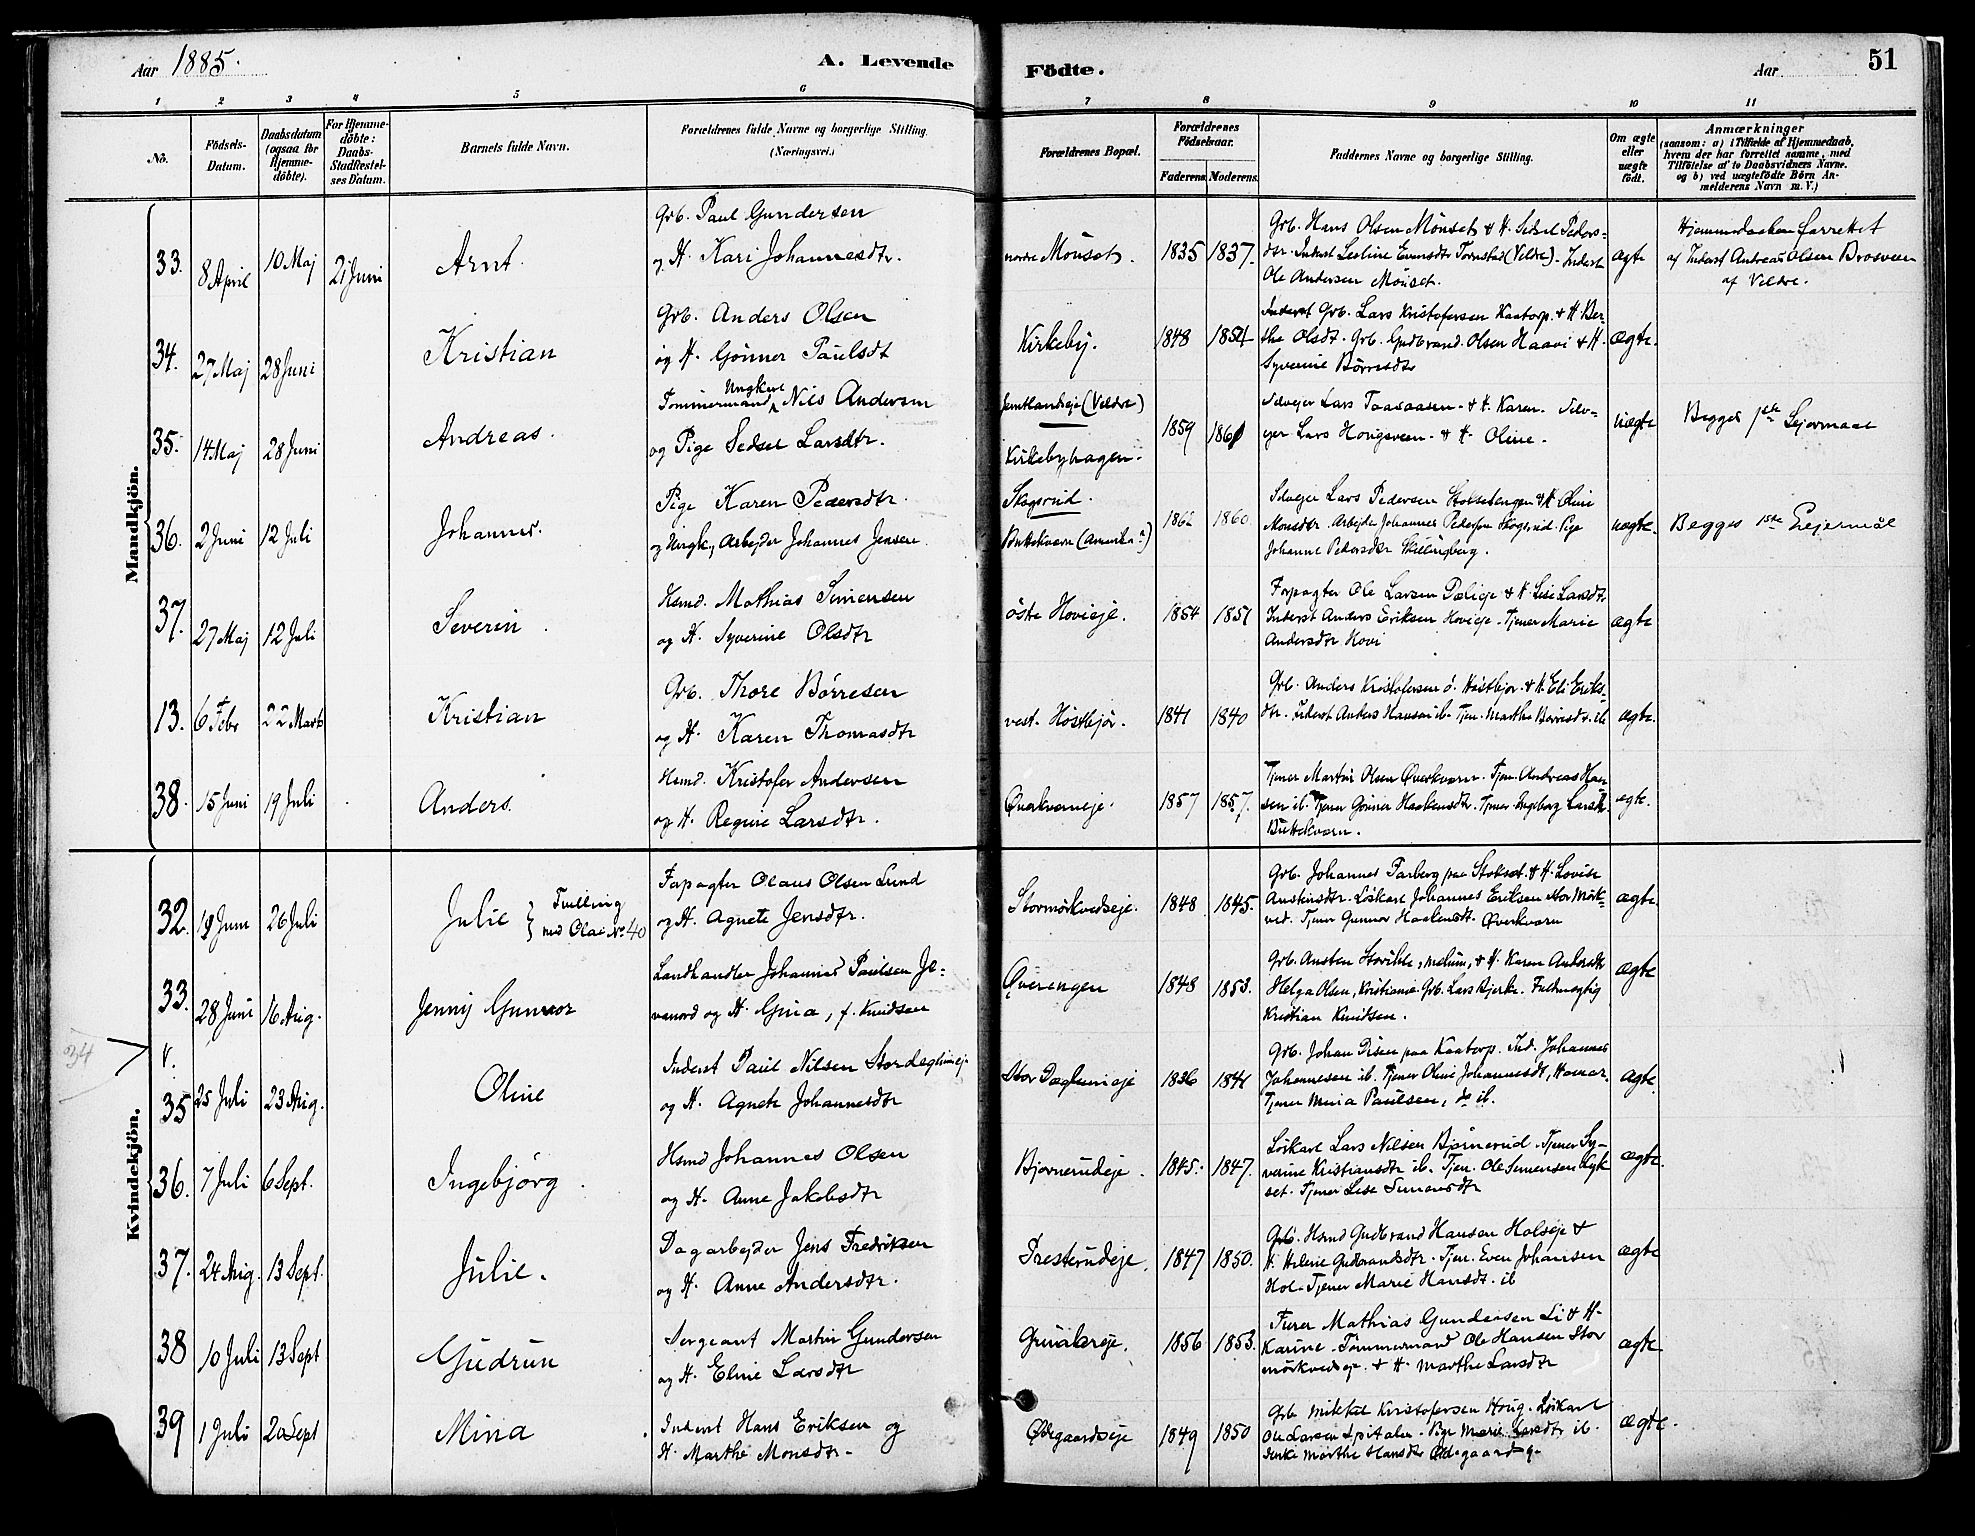 Aar 1885. A. Levende Födte. Aar 51
1 2 3 4 5 6 7 8 9 10 11
No. Födsels-Datum. Daabsdatum (ogsaa for Hjemme-döbte). For Hjemme-döbte: Daabs-Stadfæstel-ses Datum. Barnets fulde Navn. Forældrenes fulde Navne og borgerlige Stilling. (Næringsvei.) Forældrenes Bopæl. Forældrenes Födselsaar. Faderens. Moderens. Faddernes Navne og borgerlige Stilling. Om ægte eller uægte födt.
Anmærkninger
(saasom: a) i Tilfælde af Hjemmedaab,
hvem der har forrettet samme, med
Tilföielse af to Daabsvidners Navne.
og b) ved uægtefödte Börn An-
melderens Navn m. V.)
Mandkjön.
33. 8 April 10 Maj 21 Juni Arnt.
Grb. Paul Gundersen
og H. Kari Johannesdtr.
nordre Mönset. 1835 1837.
Grb. Hans Olsen Mönset & H. Sidsel Peders-
dtr. Inderst Evensdtr (Veldre). Inderst
Ole Andersen Mönset.
ægte
Hjemmedaaben forrettet
af Inderst Andreas Olsen Brosveen
af Veldre.
34. 27 Maj 28 Juni Kristian
Grb. Anders Olsen
og H. Gönner Paulsdt
Kirkeby. 1848 1854
Grb. Lars Kristofersen Kaatorp. & H. Ber-
the Olsdt. Grb. Gudbrand Olsen Haavi & H.
Syverine Börresdtr
ægte.
35. 14 Maj 28 Juni Andreas.
Tommermand Ungkarl Nils Andersen
og Pige Sidsel Larsdtr.
Jemtlandseje (Veldre)
Kirkebyhagen.
1859 1861
Selvejer Lars & H. Karen. Selv-
ejer Lars Hougsveen & H. Oline.
uægte
Begges 1ste Lejermaal
36. 2 Juni 12 Juli Johannes.
Pige Karen Pedersdtr.
og Ungk., Arbejder Johannes Jensen.
Skogsrud.
Buttekvern (Amerika?)
1862 1860.
Selvejer Lars Pedersen & H. Oline
Monsdtr. Arbejder Johannes Pedersen Skogsrud. Pige
Johanne Pedersdtr Skillingberg.
uægte.
Begges 1ste Lejermål
37. 27 Maj 12 Juli Severin
Hsmd. Mathias Simensen
og H. Syverine Olsdtr
östre Hovieje. 1854 1851
Forpagter Ole Larsen Dæleje & H. Lise Larsdtr
Inderst Anders Eriksen Hovieje. Tjener Marie
Andersdtr Hovi
ægte
13. 6 Febr 22 Marts Kristian
Grb. Thore Börresen
og H. Karen Thomasdtr
vest. Höstbjör. 1841 1840
Grb. Anders Kristofersen ö. Höstbjör & H. Eli Eriks-
dtr. Inderst Anders Hansen ib. Tjen. Marthe Börresdtr. ib
ægte.
38. 15 Juni 19 Juli Anders.
Hsmd. Kristofer Andersen
og H. Regine Larsdtr.
Överkverneje. 1857 1857.
Tjener Martin Olsen Överkvern. Tjen. Andreas Han-
sen ib. Tjener Gönner Haakensdtr. Tjener Ingeborg Larsdtr
Buttekvern.
ægte.
Kvindekjön.
32. 19 Juni 26 Juli Julie } Tvilling
med Olaf No 40
Forpagter Olaus Olsen Lund
og H. Agnete Jensdtr.
Stormörkvedseje. 1848 1845.
Grb. Johannes Farberg paa Stokset & H. Lovise
Austinsdtr. Löskarl Johannes Eriksen Stor Mörk-
ved. Tjener Gunnor Haakensdt. Överkvern
ægte.
33. 28 Juni 16 Aug. Jenny Gunvor
Landhandler Johannes Paulsen Je-
vanord og H. Gina, f. Knudsen
Överengen 1848 1853.
Grb. Austen Melum, & H. Karen Andersdtr
Helga Olsen, Kristiania. Grb. Lars Bjerke. Fuldmægtig
Kristian Knudsen.
ægte
34
35 25 Juli 23 Aug. Oline
Inderst Paul Nilsen Stordæhlineje
og H. Agnete Johannesdtr
Stor Dæhlineje 1836 1841
Grb. Johan Disen paa Kaatorp. Ind. Johannes
Johannesen ib. Tjener Oline Johannesdt, Hamar.
Tjener Mina Paulsen, do ib.
ægte.
36. 7 Juli 6 Sept. Ingebjörg
Hsmd Johannes Olsen
og H. Anne Jakobsdtr
Bjørnerudeje. 1845. 1847.
Löskarl Lars Nilsen Bjørnerud. Tjener Sy-
verine Kristiansdtr ib. Tjen. Ole Simensen Lyk-
set. Tjener Lise Simensdtr
ægte.
37. 24 Aug. 13 Sept. Julie.
Dagarbejder Jens Fredriksen
og H. Anne Andersdtr.
Presterudeje. 1847 1850.
Grb. Hsmd Gudbrand Hansen Holseje &
H. Helene Gudbrandsdtr. Tjen. Even Johansen
Hol. Tjener Marie Hansdt. ib
ægte
38 10 Juli 13 Sept Gudrun
Sergeant Martin Gundersen
og H. Eline Larsdtr
Grinakereje. 1856 1853.
Furer Mathias Gundersen Li & H.
Karine. Tömmermand Ole Hansen Stor
mörkvedseje & H. Marthe Larsdtr
ægte
39 1 Juli 20 Sept Mina
Inderst Hans Eriksen og
H. Marthe Monsdtr.
Ödegaardseje 1849 1850
Grb Mikkel Kristofersen Houg. Löskarl
Ole Larsen Spitalen. Pige Marie Larsdtr ib.
Enke Marthe Hansdtr Ödegaard
ægte.